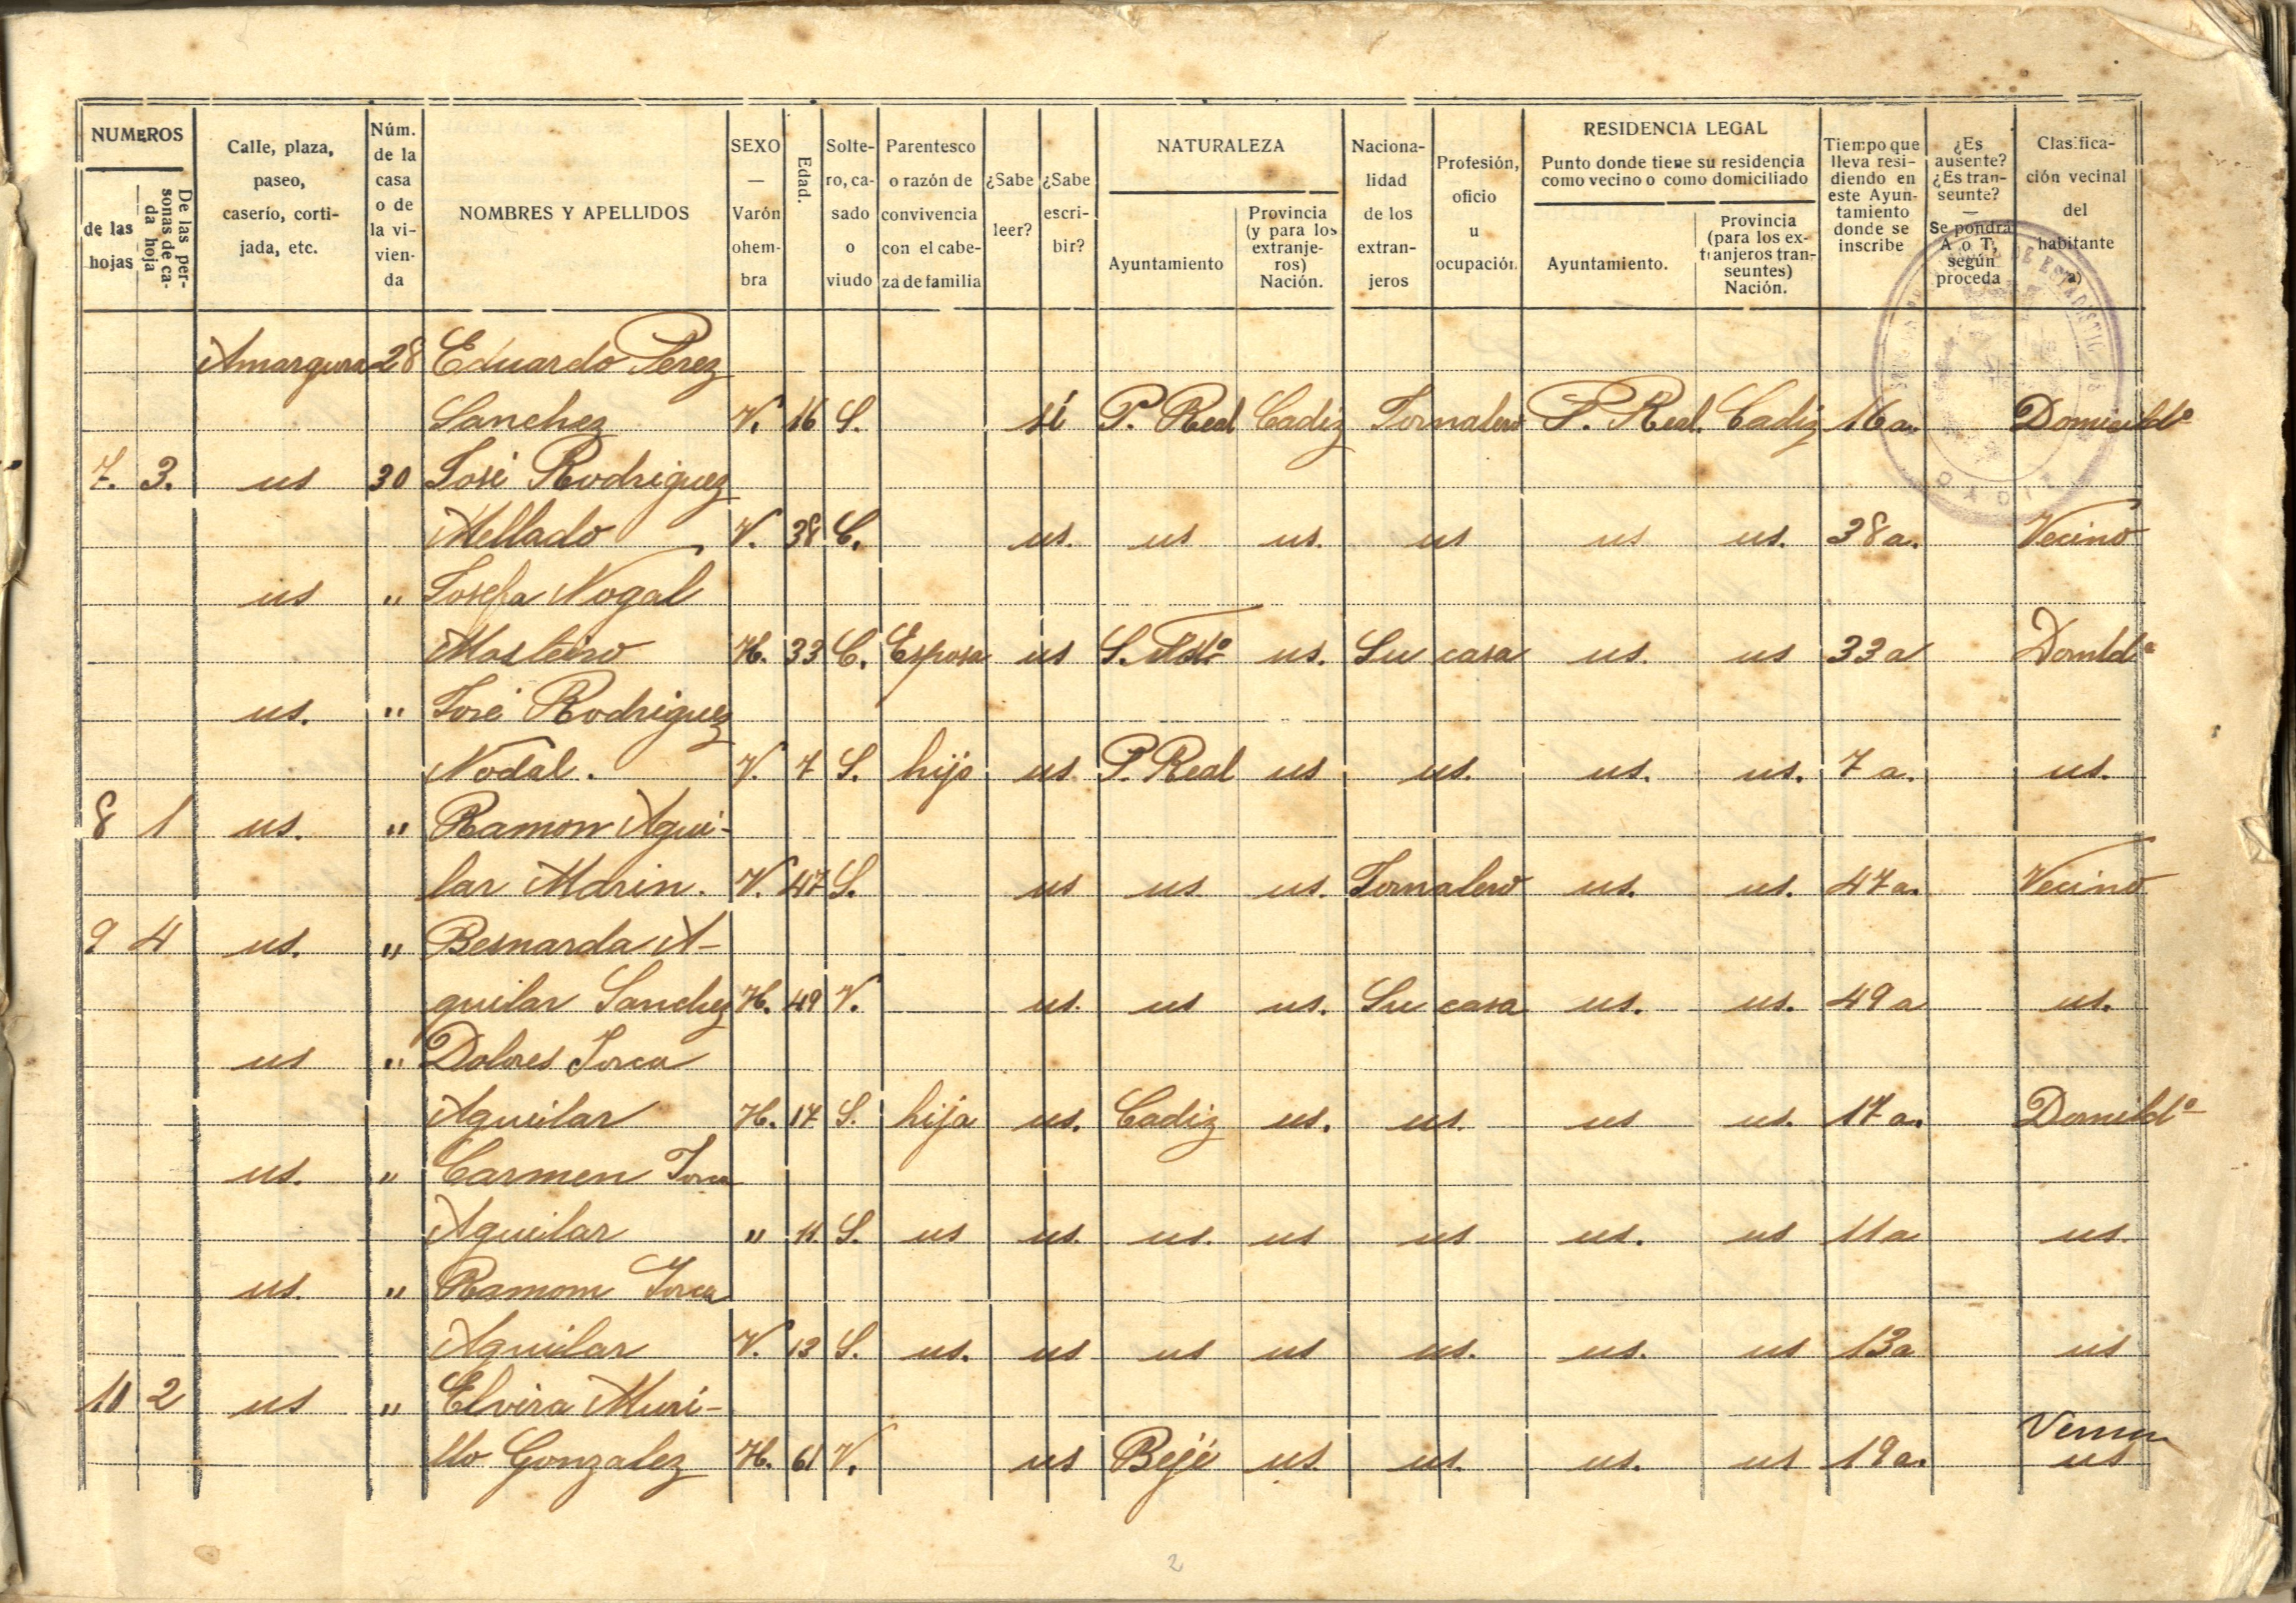 NUMEROS
de las hojas
De las personas de cada hoja
Calle, plaza, paseo, caserío, cortijada, etc.
Núm. de la casa o de la vivienda
NOMBRES Y APELLIDOS
SEXO — Varón o hembra
Edad.
Soltero, casado o viudo
Parentesco o razón de convivencia con el cabeza de familia
¿Sabe leer?
¿Sabe escribir?
NATURALEZA
Ayuntamiento
Provincia (y para los extranjeros) Nación.
Nacionalidad de los extranjeros
Profesión, oficio u ocupación.
RESIDENCIA LEGAL
Punto donde tiene su residencia como vecino o como domiciliado
Ayuntamiento.
Provincia (para los extranjeros transeuntes) Nación.
Tiempo que lleva residiendo en este Ayuntamiento donde se inscribe
¿Es ausente? ¿Es transeunte? — Se pondrá A o T, según proceda
Clasificación vecinal del habitante a)
Amargura 28 Eduardo Perez
Sanchez V. 16 S. sí P. Real Cadiz Jornalero P. Real. Cadiz 16 a. Domicildº
7. 3. us 30 José Rodriguez
Mellado V. 38 C. us. us us. us us us. 38 a. Vecino
us " Josefa Nogal
Mosteiro H. 33 C. Esposa us S. Fdº us. Su casa us. us 33 a Domildª
us. " José Rodriguez
Nodal. V. 7 S. hijo us P. Real us us. us. us. 7 a. us.
8 1 us. " Ramon Agui-
lar Marin. V. 47 S. us us us. Jornalero us. us. 47 a. Vecino
9 4 us. " Bernarda A-
guilar Sanchez H. 49 V. us. us us. Su casa us. us. 49 a us.
us " Dolores Jorca
Aguilar H. 17 S. hija us. Cadiz us. us. us us. 17 a. Domildº
us. " Carmen Jorca
Aguilar " 11. S. us us. us. us us us. us 11 a us.
us. " Ramom Jorca
Aguilar V. 13 S. us. us us us us. us. us 13 a us
10 2 us " Elvira Muri-
llo Gonzalez H. 61 V. us Bejé us. us. us. us 19 a. us
DE ESTADISTICA
CADIZ
2